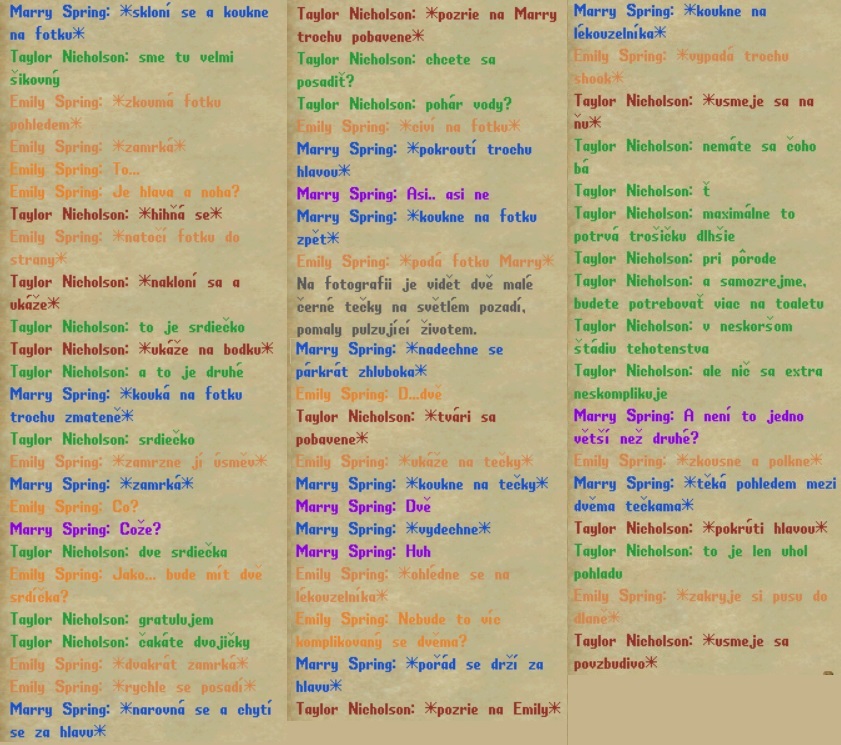 Marry Spring: *skloní se a koukne
na fotku*
Taylor Nicholson: sme tu velmi
šikovný
Emily Spring: *zkoumá fotku
pohledem*
Emily Spring: *zamrká*
Emily Spring: To...
Emily Spring: Je hlava a noha?
Taylor Nicholson: *hihňá se*
Emily Spring: *natočí fotku do
strany*
Taylor Nicholson: *nakloní sa a
ukáže*
Taylor Nicholson: to je srdiečko
Taylor Nicholson: *ukáže na bodku*
Taylor Nicholson: a to je druhé
Marry Spring: *kouká na fotku
trochu zmateně*
Taylor Nicholson: srdiečko
Emily Spring: *zamrzne jí úsměv*
Marry Spring: *zamrká*
Emily Spring: Co?
Marry Spring: Cože?
Taylor Nicholson: dve srdiečka
Emily Spring: Jako... bude mít dvě
srdíčka?
Taylor Nicholson: gratulujem
Taylor Nicholson: čakáte dvojičky
Emily Spring: *dvakrát zamrká*
Emily Spring: *rychle se posadí*
Marry Spring: *narovná se a chytí
se za hlavu*
Taylor Nicholson: *pozrie na Marry
trochu pobavene*
Taylor Nicholson: chcete sa
posadiť?
Taylor Nicholson: pohár vody?
Emily Spring: *civí na fotku*
Marry Spring: *pokroutí trochu
hlavou*
Marry Spring: Asi.. asi ne
Marry Spring: *koukne na fotku
zpět*
Emily Spring: *podá fotku Marry*
Na fotografii je vidět dvě malé
černé tečky na světlém pozadí,
pomaly pulzující životem.
Marry Spring: *nadechne se
párkrát zhluboka*
Emily Spring: D...dvě
Taylor Nicholson: *tvári sa
pobavene*
Emily Spring: *ukáže na tečky*
Marry Spring: *koukne na tečky*
Marry Spring: Dvě
Marry Spring: *vydechne*
Marry Spring: Huh
Emily Spring: *ohlédne se na
lékouzelníka*
Emily Spring: Nebude to víc
komplikovaný se dvěma?
Marry Spring: *pořád se drží za
hlavu*
Taylor Nicholson: *pozrie na Emily*
Marry Spring: *koukne na
lékouzelníka*
Emily Spring: *vypadá trochu
shook*
Taylor Nicholson: *usmeje sa na
ňu*
Taylor Nicholson: nemáte sa čoho
bá
Taylor Nicholson: ť
Taylor Nicholson: maximálne to
potrvá trošičku dlhšie
Taylor Nicholson: pri pôrode
Taylor Nicholson: a samozrejme,
budete potrebovať viac na toaletu
Taylor Nicholson: v neskoršom
štádiu tehotenstva
Taylor Nicholson: ale nič sa extra
neskomplikuje
Marry Spring: A není to jedno
větší než druhé?
Emily Spring: *zkousne a polkne*
Marry Spring: *těká pohledem mezi
dvěma tečkama*
Taylor Nicholson: *pokrúti hlavou*
Taylor Nicholson: to je len uhol
pohladu
Emily Spring: *zakryje si pusu do
dlaně*
Taylor Nicholson: *usmeje sa
povzbudivo*